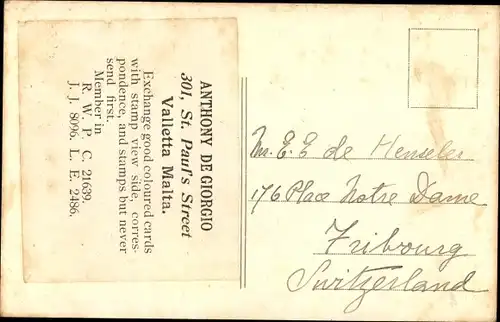 ANTHONY DE GIORGIO
301, St. Paul's Street
Valletta Malta.
Exchange good coloured cards
with stamp view side, corres-
pondence, and stamps but never
send first.
Member in
R. W. P. C. 21639.
J. J. 8096, L. E. 2486.
E. E de Henseler
176 Place Notre Dame
Fribourg
Switzerland